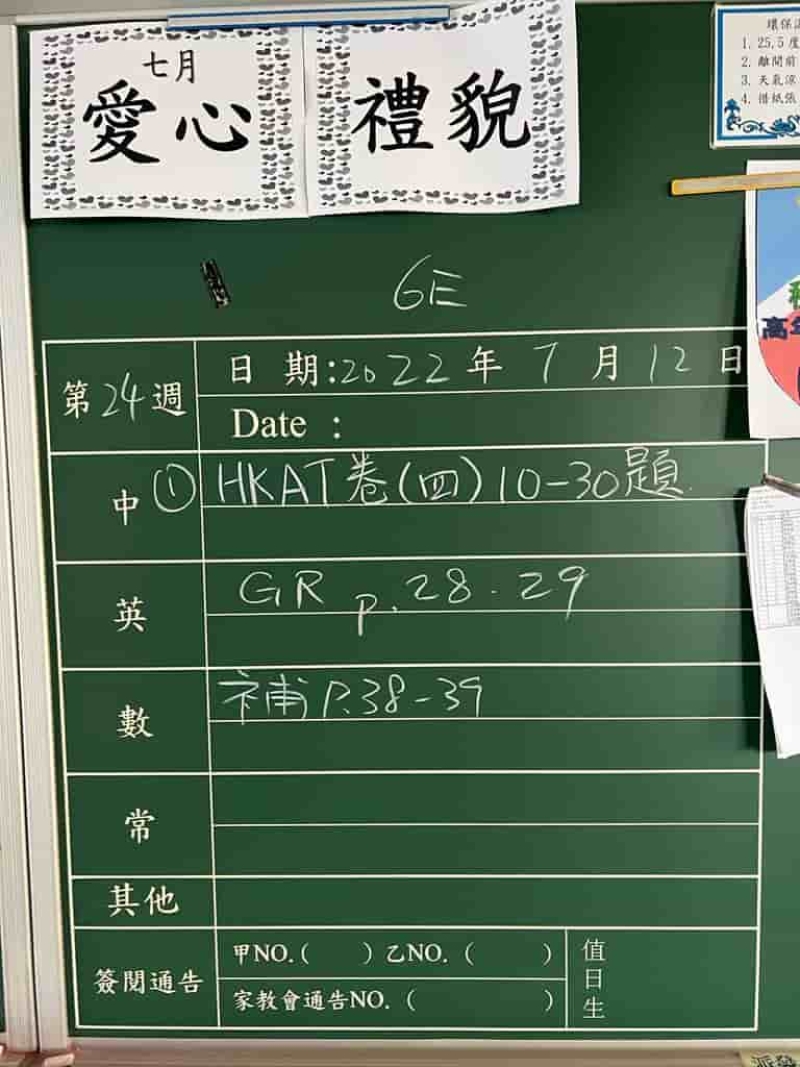 七月
愛心
禮貌
環保
1. 25.5 度
2. 離開前
3. 天氣涼
4. 借紙張
6E
高年
第24週
日期:2022年7月12日
Date :
中 ① HKAT卷(四)10-30題
英 GR p.28.29
數 補P.38-39
常
其他
簽閱通告
甲NO.( ) 乙NO.( )
家教會通告NO.( )
值日生